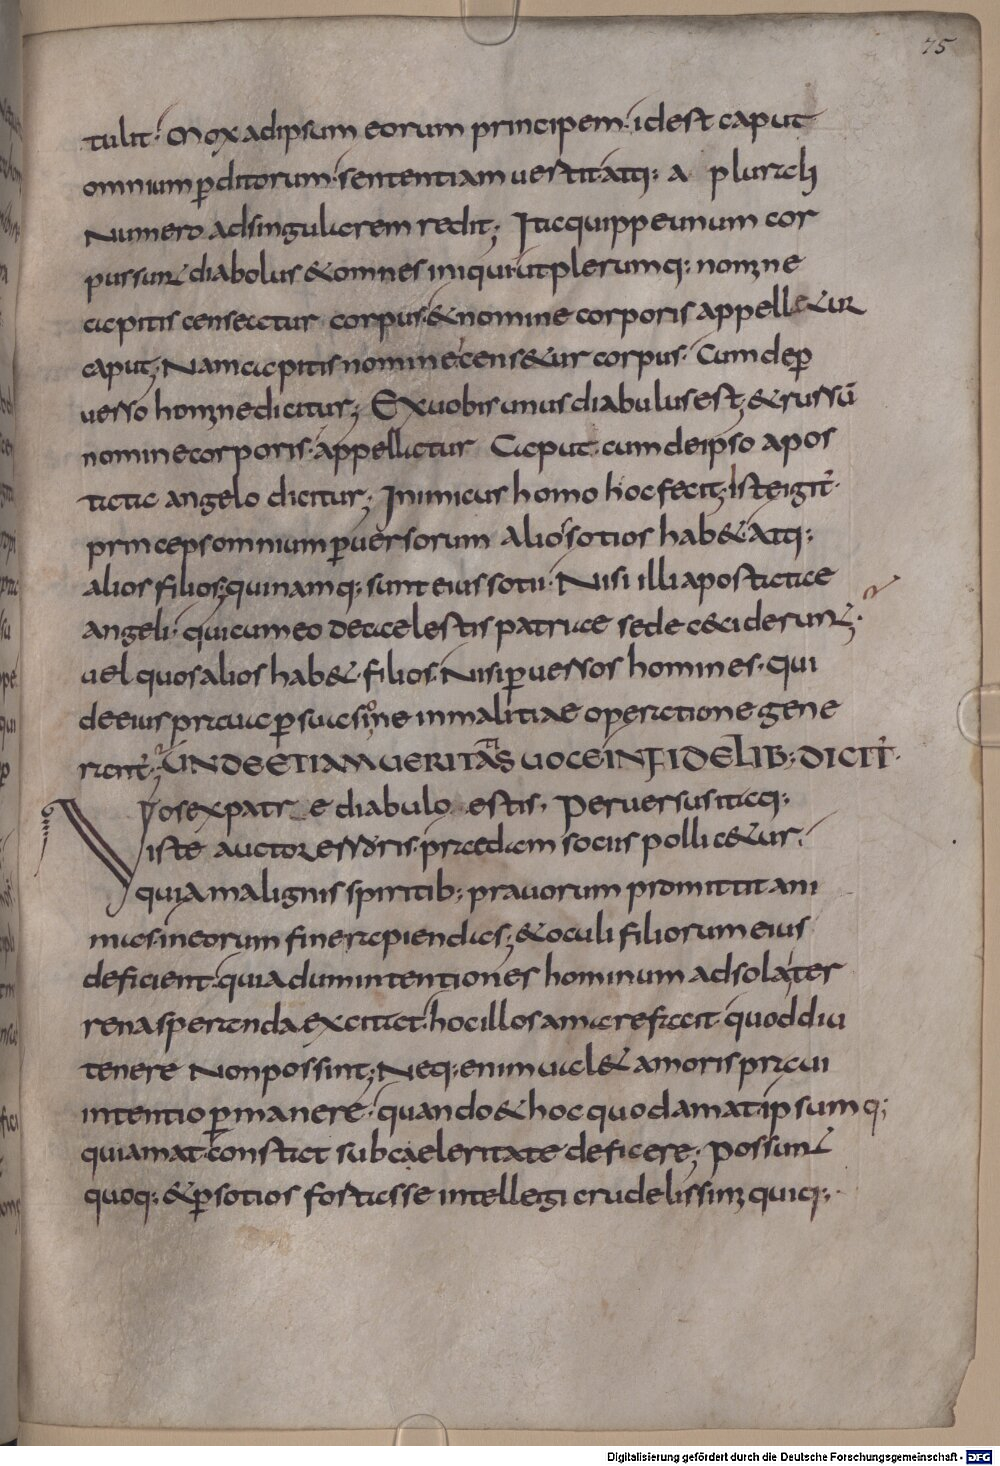 75
tulit· Mox adipsum eorum principem· idest caput
omnium ꝑditorum· sententiam uestit atq: a plurali
Numero adsingularem redit; Itaquippe unum cor
pus sunt diabolus & omnes iniqui· ut plerumq: nomine
capitis censeatur corpus· & nomine corporis appell&ur
caput; Nam capitis nomine cens&ur corpus· Cum de ꝑ
uesso homine dicitur; Ex uobis unus diabulus est; & russū
nomine corporis· appellatur Caput· cum de ipso apos
tata angelo dicitur; Inimicus homo hoc fecit; Iste igit̉·
princeps omnium ꝑuersorum Alios sotios hab& atq:
alios filios; qui namq: sunt eius sotii· Nisi illi apostatae
angeli· qui cum eo de caelestis patriae sede c&ciderunt;
uel quos alios hab& filios· Nisi ꝑuessos homines· qui
de eius praua ꝑsuasione in malitiae operatione gene
rant̉; UNDE ETIAM UERITATIS UOCE INFIDELIB: DICIT̉·
Vos ex patre diabulo estis· Peruersus itaq:
iste auctor essoris· praedam sociis pollic&ur·
quia malignis spiritib: prauorum promittit ani
mas· in eorum fine rapiendas; & oculi filiorum eius
deficient· quia dum intentiones hominum ad sola ter
rena speranda excitat· hoc illos amare facit· quod diu
tenere Non possint; Neq: enim ual& amoris praui
intentio ꝑmanere· quando & hoc quod amat· ipsum q;
qui amat· constat sub caeleritate deficere; Possunt
quoq: & ꝑ sotios fostasse intellegi crudelissimi quiq:·
Digitalisierung gefördert durch die Deutsche Forschungsgemeinschaft - DFG